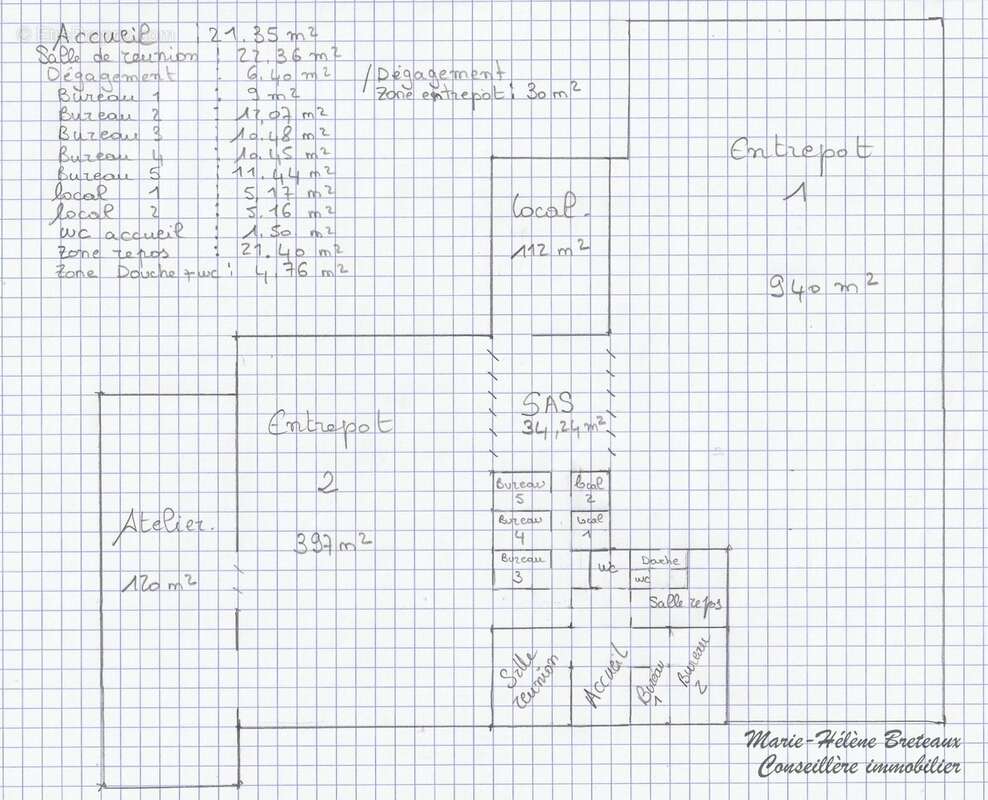 Accueil : 21.35 m²
Salle de reunion : 22.36 m²
Dégagement : 6.40 m² / Dégagement
Bureau 1 : 9 m² Zone entrepot : 30 m²
Bureau 2 : 12,07 m²
Bureau 3 : 10.48 m²
Bureau 4 : 10.45 m²
Bureau 5 : 11.44 m²
local 1 : 5,17 m²
local 2 : 5.16 m²
wc accueil : 1.50 m²
Zone repos : 21.40 m²
Zone Douche + wc : 4,76 m²
Entrepot
1
940 m²
local.
112 m²
SAS
34,24 m²
Entrepot
2
397 m²
Atelier.
120 m²
Bureau
5
local
2
Bureau
4
local
1
Bureau
3
wc
Douche
wc
Salle repos
Salle
reunion
Accueil
Bureau
1
Bureau
2
Marie-Hélène Breteaux
Conseillère immobilier